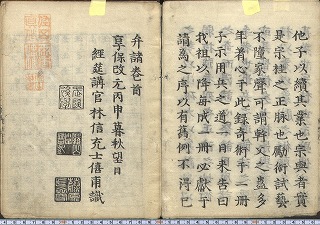 他子以續其業也崇與者實
是宗桂之正脉也勵術試藝
不墮家聲可謂軒又之蓋多
年者心于此録奇術于二冊
子示用兵之道一日來告曰
我祖以降毎成一冊必獻乎
請為之序以有舊例不得已
弁諸巻首
享保改元丙申暮秋望日
經筵講官林信充士僖甫識